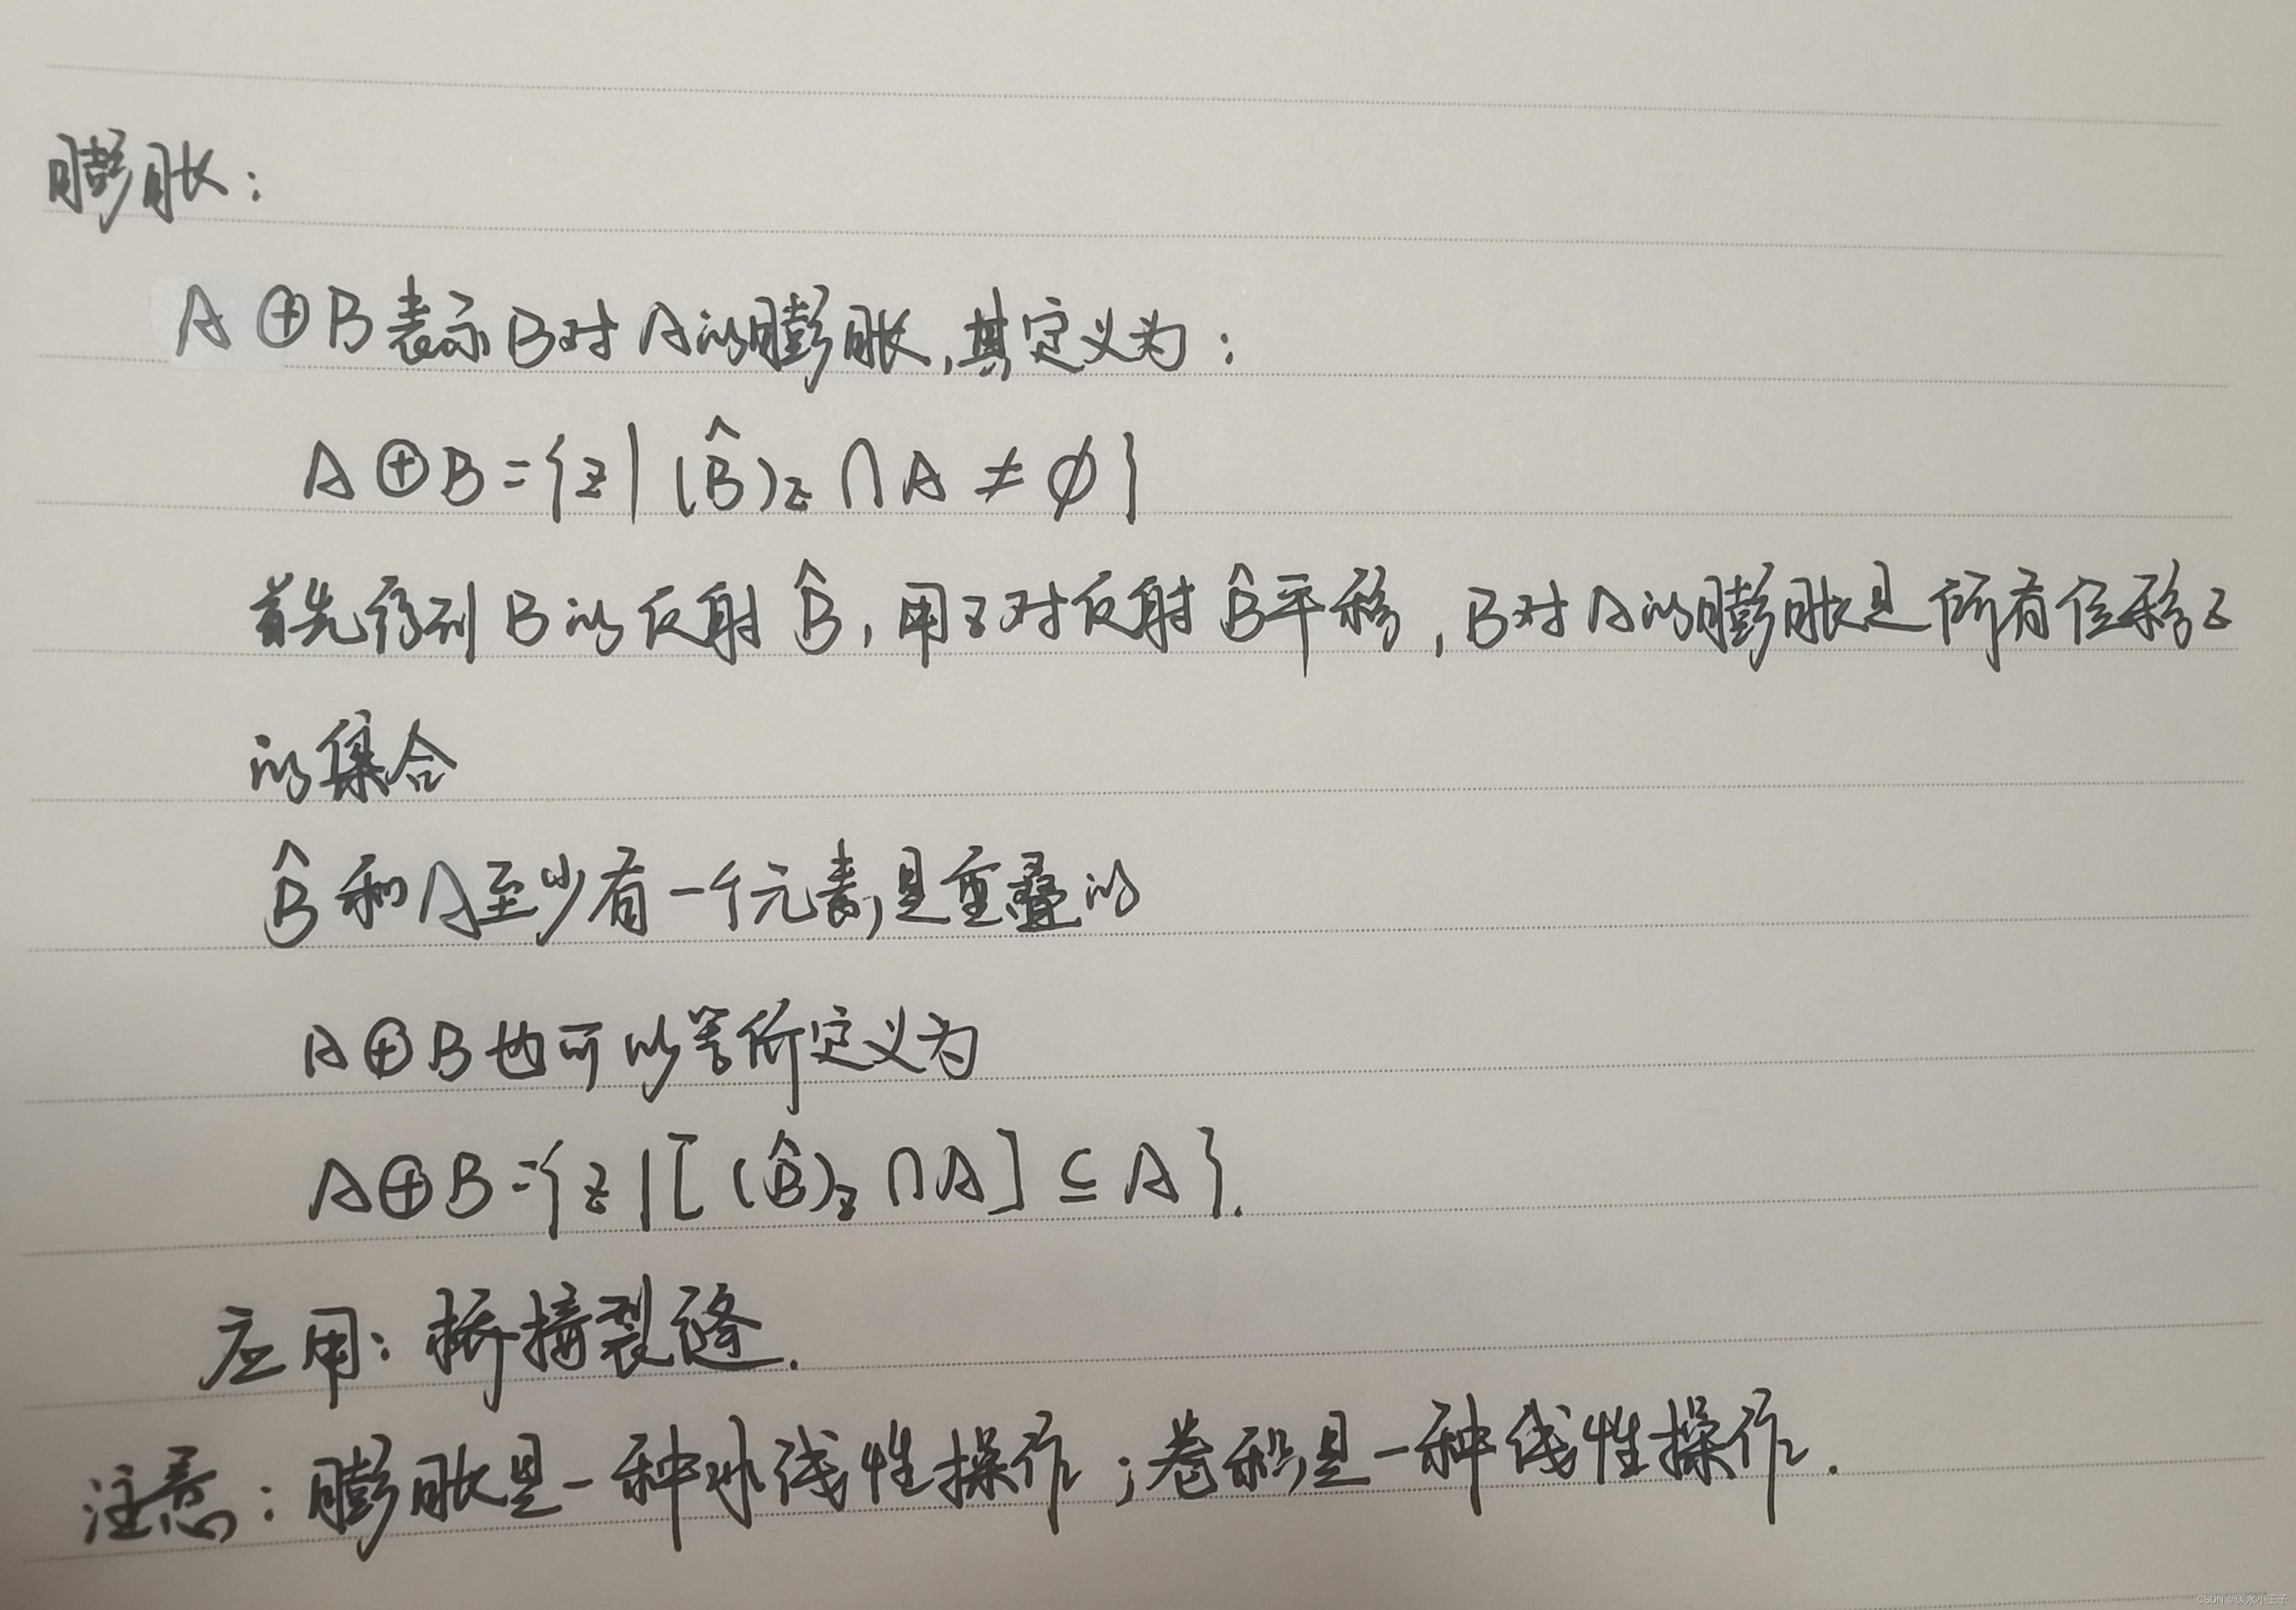 膨胀：
A⊕B表示B对A的膨胀,其定义为：
A⊕B={z|(B̂)z∩A≠∅}
首先得到B的反射B̂,用z对反射B̂平移,B对A的膨胀是所有位移z
的集合
B̂和A至少有一个元素是重叠的
A⊕B也可以等价定义为
A⊕B={z|[(B̂)z∩A]⊆A}.
应用：桥接裂缝.
注意：膨胀是一种非线性操作;卷积是一种线性操作.
CSDN @碳水小王子